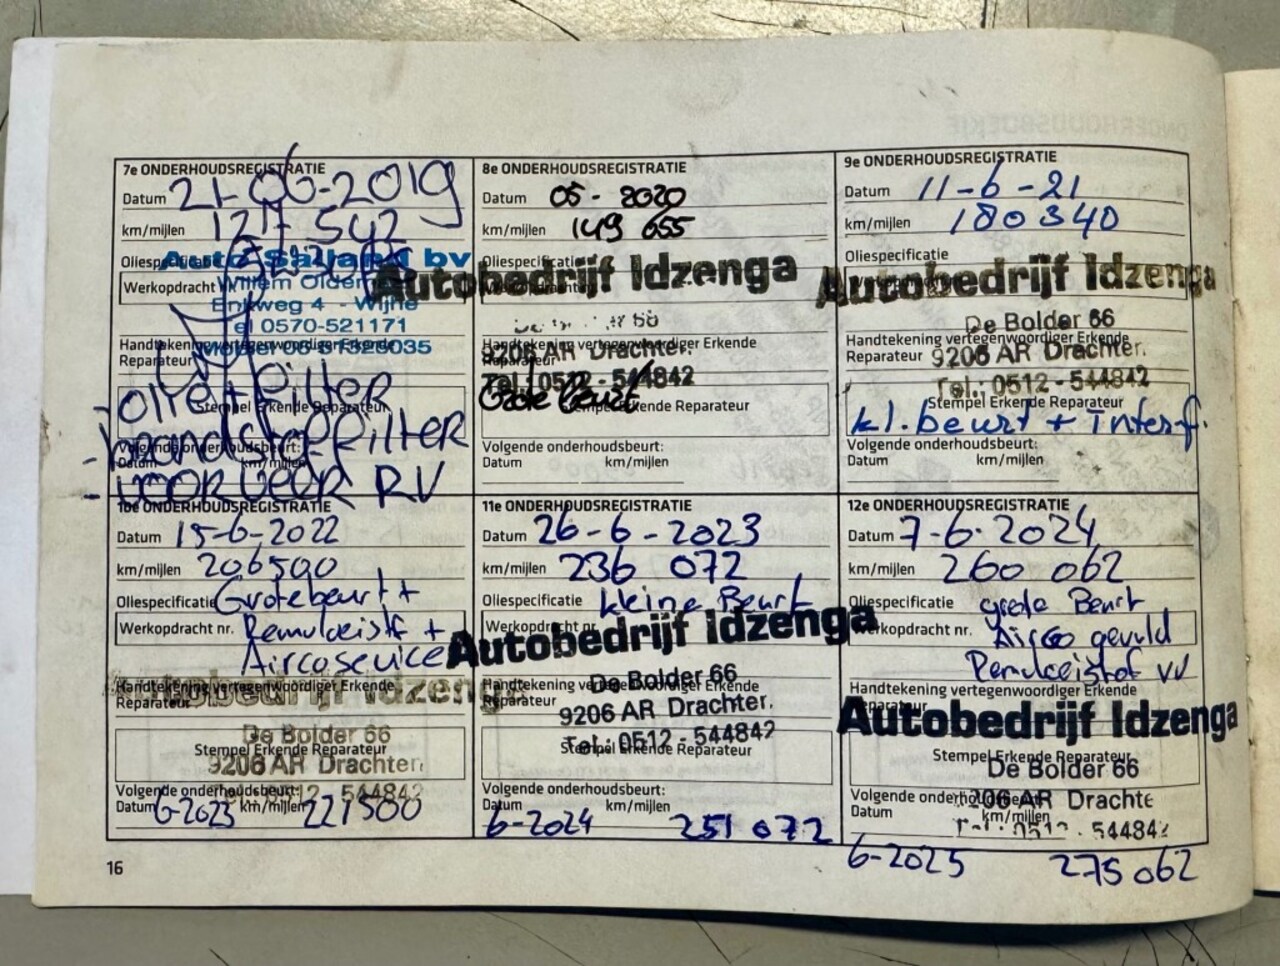 7e ONDERHOUDSREGISTRATIE
Datum 21-06-2019
km/mijlen 127 542
Oliespecificatie
Auto Salland bv
Werkopdracht Willem Olden
Enkweg 4 - Wijhe
Tel 0570-521171
Handtekening vertegenwoordiger Erkende
Reparateur Mobiel 06-51328035
- olie + filter
Stempel Erkende Reparateur
- brandstoffilter
Volgende onderhoudsbeurt:
Datum km/mijlen
- voorveer RV
8e ONDERHOUDSREGISTRATIE
Datum 05 - 2020
km/mijlen 149 655
Oliespecificatie
Autobedrijf Idzenga
Handtekening vertegenwoordiger Erkende
Reparateur
9206 AR Drachten
Tel.: 0512 - 544842
Grote beurt
Stempel Erkende Reparateur
Volgende onderhoudsbeurt:
Datum km/mijlen
9e ONDERHOUDSREGISTRATIE
Datum 11-6-21
km/mijlen 180340
Oliespecificatie
Autobedrijf Idzenga
De Bolder 66
Handtekening vertegenwoordiger Erkende
Reparateur 9206 AR Drachter.
Tel.: 0512 - 544842
Stempel Erkende Reparateur
kl. beurt + interf.
Volgende onderhoudsbeurt:
Datum km/mijlen
10e ONDERHOUDSREGISTRATIE
Datum 15-6-2022
km/mijlen 206500
Oliespecificatie Grote beurt +
Werkopdracht nr. Remvloeistf +
Aircoservice
Autobedrijf Idzenga
Handtekening vertegenwoordiger Erkende
Reparateur
De Bolder 66
Stempel Erkende Reparateur
9206 AR Drachten
Volgende onderhoudsbeurt:
Tel.: 0512 - 544842
Datum 6-2023 km/mijlen 221500
11e ONDERHOUDSREGISTRATIE
Datum 26-6-2023
km/mijlen 236 072
Oliespecificatie kleine Beurt
Werkopdracht nr.
Autobedrijf Idzenga
De Bolder 66
Handtekening vertegenwoordiger Erkende
Reparateur
9206 AR Drachter.
Tel.: 0512 - 544842
Stempel Erkende Reparateur
Volgende onderhoudsbeurt:
Datum km/mijlen
6-2024 251 072
12e ONDERHOUDSREGISTRATIE
Datum 7-6-2024
km/mijlen 260 062
Oliespecificatie grote Beurt
Werkopdracht nr. Airco gevuld
Remvloeistof vv
Handtekening vertegenwoordiger Erkende
Reparateur
Autobedrijf Idzenga
Stempel Erkende Reparateur
De Bolder 66
Volgende onderhoudsbeurt:
9206 AR Drachte
Datum km/mijlen
544842
6-2025 275 062
16